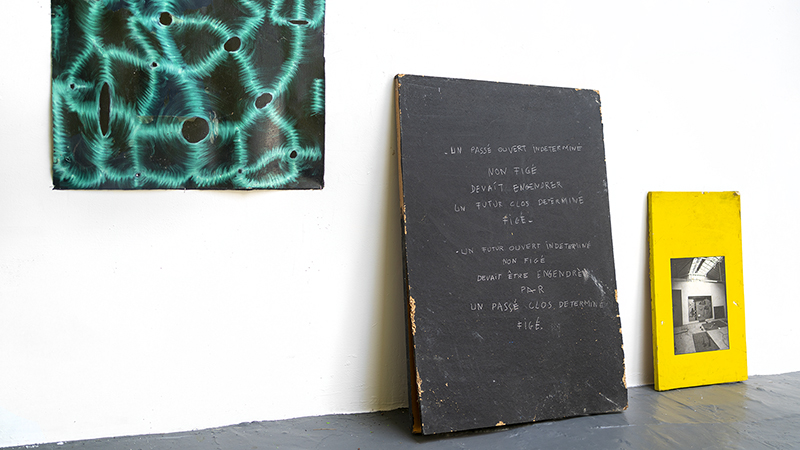 - UN PASSÉ OUVERT INDETERMINÉ
NON FIGÉ
DEVAIT ENGENDRER
UN FUTUR CLOS DETERMINÉ
FIGÉ -
- UN FUTUR OUVERT INDETERMINÉ
NON FIGÉ
DEVAIT ÊTRE ENGENDRER
PAR
UN PASSÉ CLOS DETERMINÉ
FIGÉ.